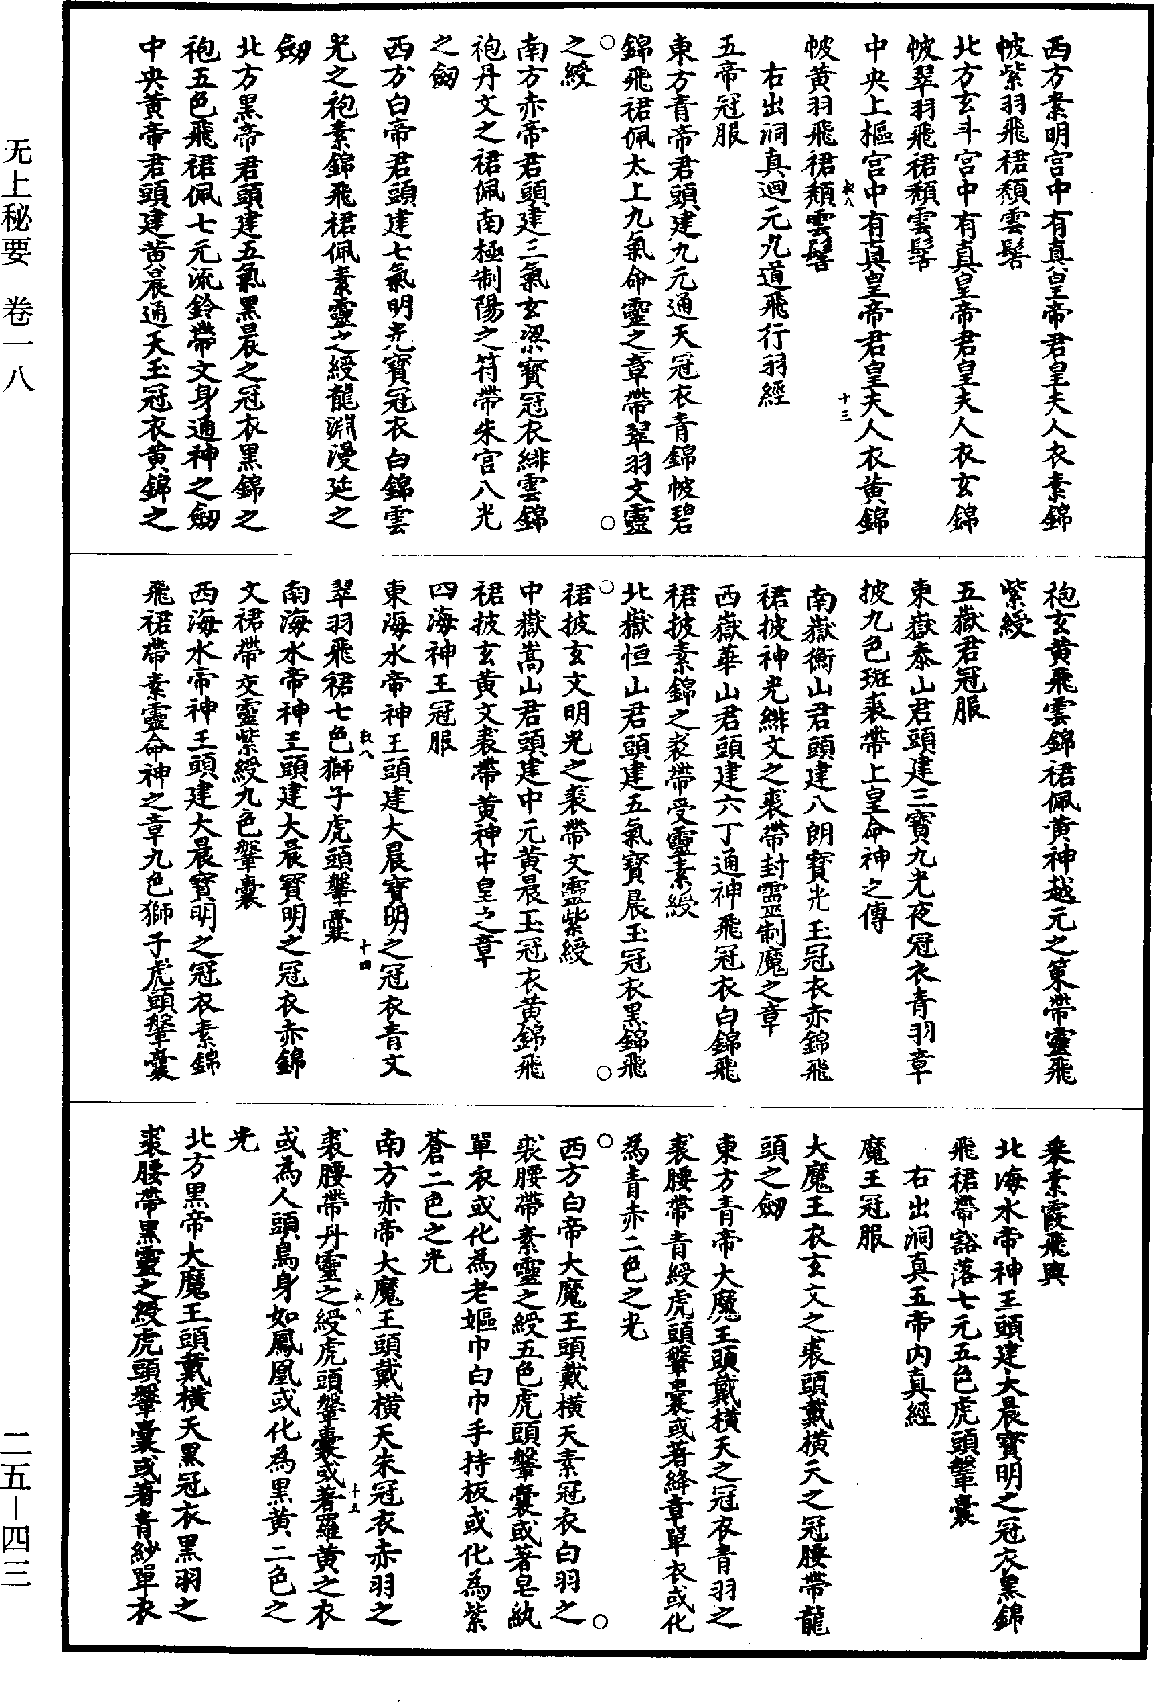 西方素明宮中有真皇帝君皇夫人衣素錦
帔紫羽飛裙頹雲髻
北方玄斗宮中有真皇帝君皇夫人衣玄錦
帔翠羽飛裙頹雲髻
中央上樞宮中有真皇帝君皇夫人衣黃錦
帔黃羽飛裙頹雲髻
右出洞真迴元九道飛行羽經
五帝冠服
東方青帝君頭建九元通天冠衣青錦帔碧
錦飛裙佩太上九氣命靈之章帶翠羽文靈
之綬
南方赤帝君頭建三氣玄梁寶冠衣緋雲錦
袍丹文之裙佩南極制陽之符帶朱宮八光
之劒
西方白帝君頭建七氣明光寶冠衣白錦雲
光之袍素錦飛裙佩素靈之綬龍淵漫延之
劒
北方黑帝君頭建五氣黑晨之冠衣黑錦之
袍五色飛裙佩七元流鈴帶文身通神之劒
中央黃帝君頭建黃晨通天玉冠衣黃錦之
袍玄黃飛雲錦裙佩黃神越元之策帶靈飛
紫綬
五嶽君冠服
東嶽泰山君頭建三寶九光夜冠衣青羽章
披九色斑裘帶上皇命神之傳
南嶽衡山君頭建八朗寶光玉冠衣赤錦飛
裙披神光緋文之裘帶封靈制魔之章
西嶽華山君頭建六丁通神飛冠衣白錦飛
裙披素錦之裘帶受靈素綬
北嶽恒山君頭建五氣寶晨玉冠衣黑錦飛
裙披玄文明光之裘帶文靈紫綬
中嶽嵩山君頭建中元黃晨玉冠衣黃錦飛
裙披玄黃文裘帶黃神中皇之章
四海神王冠服
東海水帝神王頭建大晨寶明之冠衣青文
翠羽飛裙七色獅子虎頭鞶囊
南海水帝神王頭建大晨寶明之冠衣赤錦
文裙帶交靈紫綬九色鞶囊
西海水帝神王頭建大晨寶明之冠衣素錦
飛裙帶素靈命神之章九色獅子虎頭鞶囊
乘素霞飛輿
北海水帝神王頭建大晨寶明之冠衣黑錦
飛裙帶豁落七元五色虎頭鞶囊
右出洞真五帝內真經
魔王冠服
大魔王衣玄文之裘頭戴橫天之冠腰帶龍
頭之劒
東方青帝大魔王頭戴橫天之冠衣青羽之
裘腰帶青綬虎頭鞶囊或著絳章單衣或化
為青赤二色之光
西方白帝大魔王頭戴橫天素冠衣白羽之
裘腰帶素靈之綬五色虎頭鞶囊或著皂紈
單衣或化為老嫗巾白巾手持板或化為紫
蒼二色之光
南方赤帝大魔王頭戴橫天朱冠衣赤羽之
裘腰帶丹靈之綬虎頭鞶囊或著羅黃之衣
或為人頭鳥身如鳳凰或化為黑黃二色之
光
北方黑帝大魔王頭戴橫天黑冠衣黑羽之
裘腰帶黑靈之綬虎頭鞶囊或著青紗單衣
十三
十四
十五
无上秘要 卷一八
二五—四三